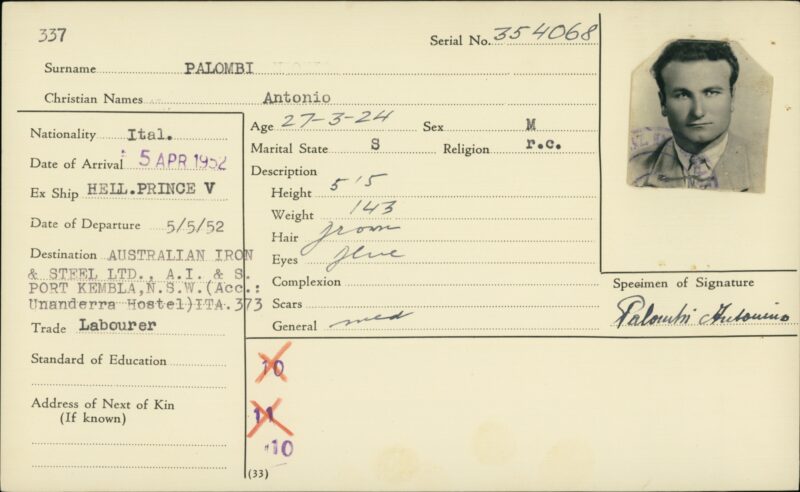 337
Serial No. 354068
Surname PALOMBI
Christian Names Antonio
Nationality Ital.
Date of Arrival 5 APR 1952
Ex Ship HELL.PRINCE V
Date of Departure 5/5/52
Destination AUSTRALIAN IRON
& STEEL LTD., A.I. & S.
PORT KEMBLA, N.S.W. (Acc.:
Unanderra Hostel) ITA.373
Trade Labourer
Standard of Education
Address of Next of Kin
(If known)
Age 27-3-24 Sex M
Marital State S Religion r.c.
Description
Height 5'5
Weight 143
Hair
Eyes
Complexion
Scars
General med
10
11
10
(33)
Specimen of Signature
Palombi Antonino